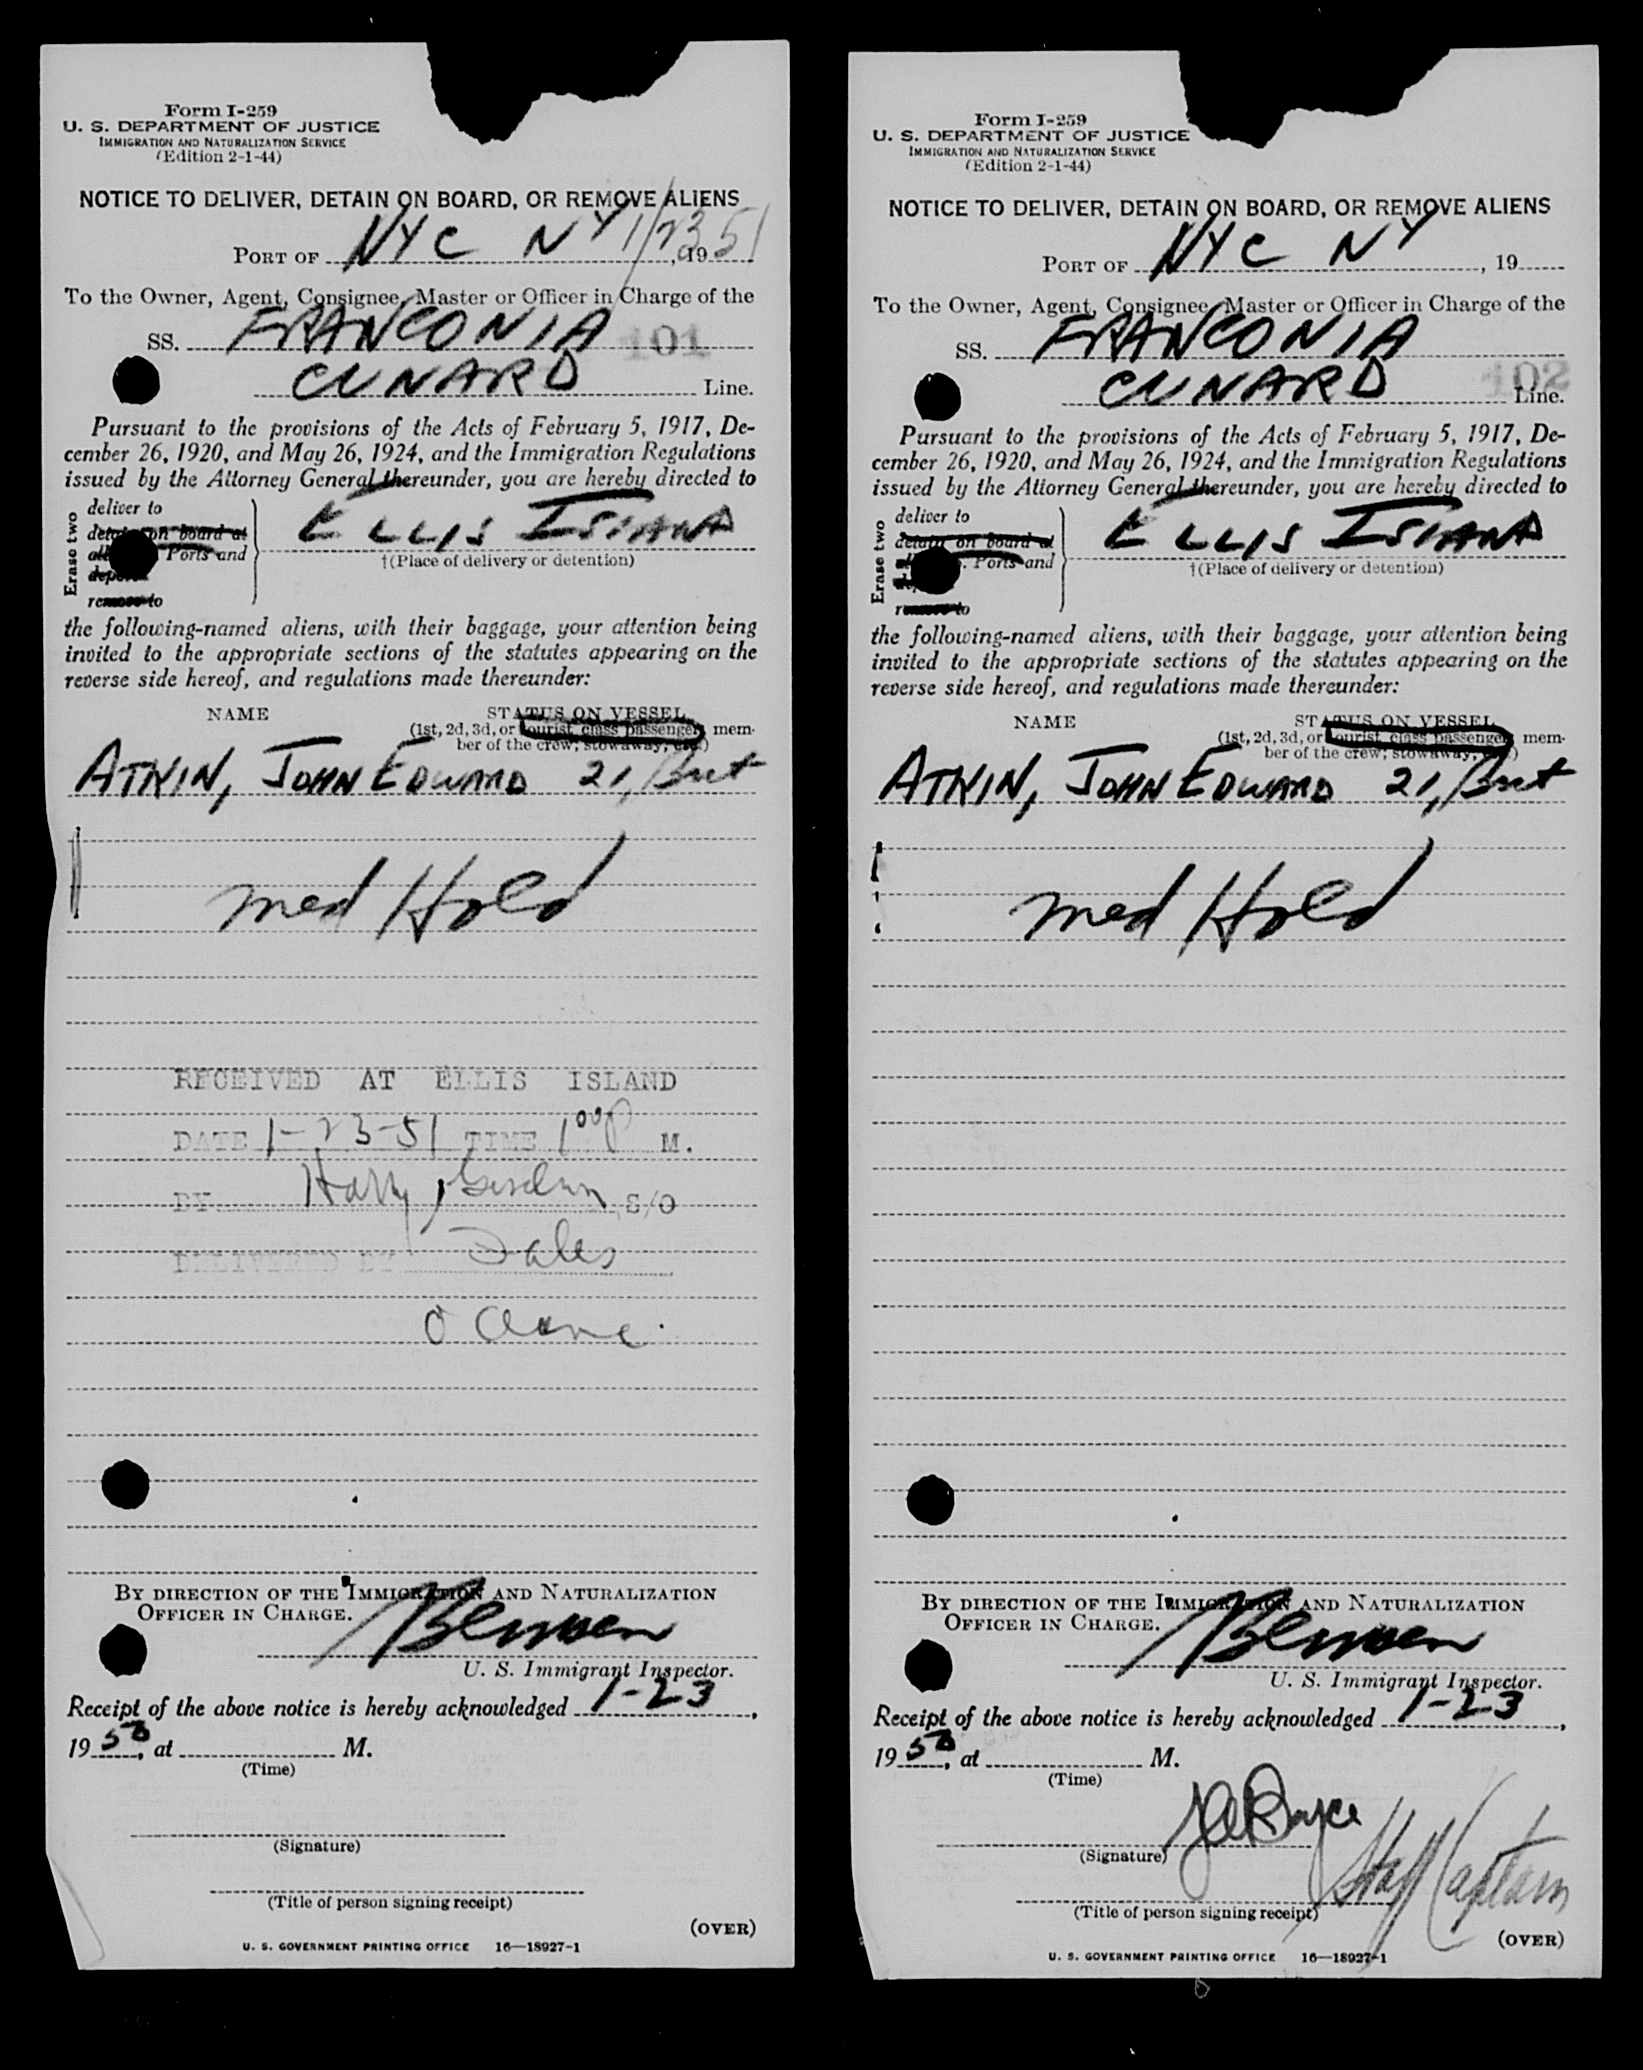 Form I-259
U. S. DEPARTMENT OF JUSTICE
IMMIGRATION AND NATURALIZATION SERVICE
(Edition 2-1-44)
NOTICE TO DELIVER, DETAIN ON BOARD, OR REMOVE ALIENS
PORT OF NYC NY 1/23, 1951
To the Owner, Agent, Consignee, Master or Officer in Charge of the
SS. FRANCONIA 101
CUNARD Line.
Pursuant to the provisions of the Acts of February 5, 1917, De-
cember 26, 1920, and May 26, 1924, and the Immigration Regulations
issued by the Attorney General thereunder, you are hereby directed to
Erase two
deliver to
detain on board at
Ports and
remove to
ELLIS ISLAND
†(Place of delivery or detention)
the following-named aliens, with their baggage, your attention being
invited to the appropriate sections of the statutes appearing on the
reverse side hereof, and regulations made thereunder:
NAME STATUS ON VESSEL
(1st, 2d, 3d, or tourist class passenger, mem-
ber of the crew; stowaway, etc.)
ATKIN, JOHN EDWARD 21, Brit
med Hold
RECEIVED AT ELLIS ISLAND
DATE 1-23-51 TIME 1 00 P M.
BY Harry S/O
DELIVERED BY Dales
BY DIRECTION OF THE IMMIGRATION AND NATURALIZATION
OFFICER IN CHARGE.
U. S. Immigrant Inspector.
Receipt of the above notice is hereby acknowledged 1-23,
1950, at M.
(Time)
(Signature)
(Title of person signing receipt)
(OVER)
U. S. GOVERNMENT PRINTING OFFICE 16—18927-1
Form I-259
U. S. DEPARTMENT OF JUSTICE
IMMIGRATION AND NATURALIZATION SERVICE
(Edition 2-1-44)
NOTICE TO DELIVER, DETAIN ON BOARD, OR REMOVE ALIENS
PORT OF NYC NY, 19
To the Owner, Agent, Consignee, Master or Officer in Charge of the
SS. FRANCONIA
CUNARD Line. 102
Pursuant to the provisions of the Acts of February 5, 1917, De-
cember 26, 1920, and May 26, 1924, and the Immigration Regulations
issued by the Attorney General thereunder, you are hereby directed to
Erase two
deliver to
detain on board at
Ports and
remove to
ELLIS ISLAND
†(Place of delivery or detention)
the following-named aliens, with their baggage, your attention being
invited to the appropriate sections of the statutes appearing on the
reverse side hereof, and regulations made thereunder:
NAME STATUS ON VESSEL
(1st, 2d, 3d, or tourist class passenger, mem-
ber of the crew; stowaway, etc.)
ATKIN, JOHN EDWARD 21, Brit
med Hold
BY DIRECTION OF THE IMMIGRATION AND NATURALIZATION
OFFICER IN CHARGE.
U. S. Immigrant Inspector.
Receipt of the above notice is hereby acknowledged 1-23,
1950, at M.
(Time)
(Signature)
Staff Captain
(Title of person signing receipt)
(OVER)
U. S. GOVERNMENT PRINTING OFFICE 16—18927-1